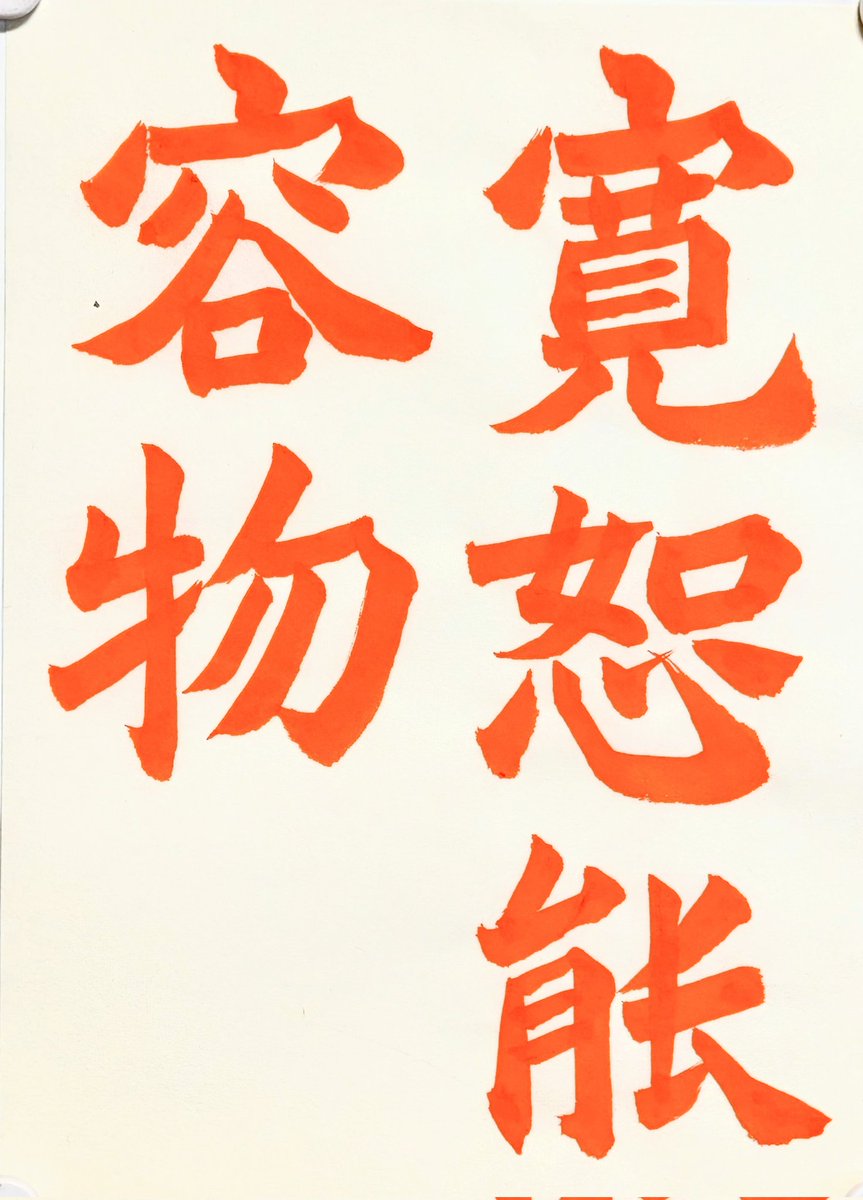 寬恕能
容物